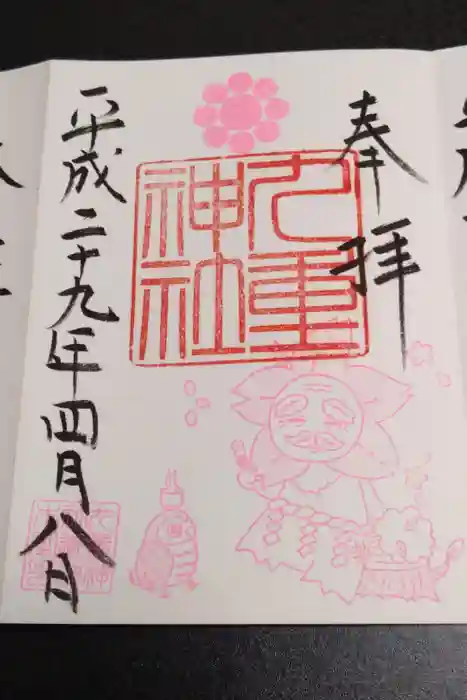 奉拝
九重
神社
平成二十九年四月八日